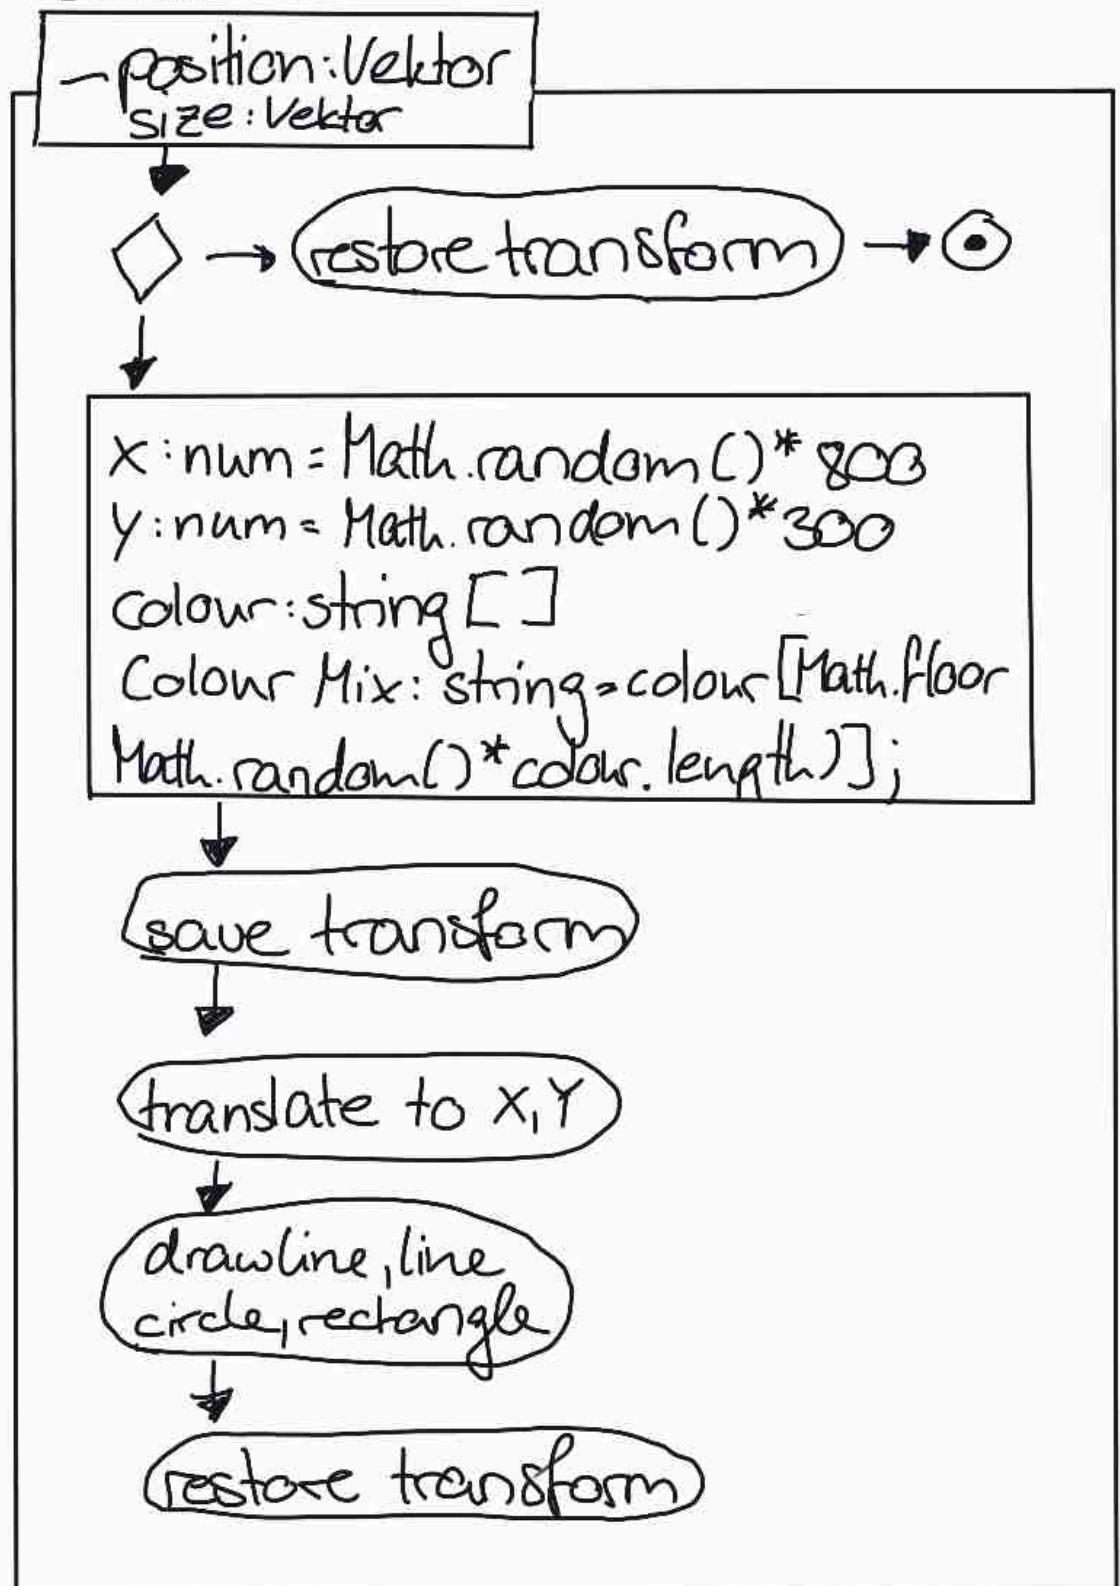 - position: Vektor
size: Vektor
restore transform
X: num = Math.random()* 800
Y: num = Math.random()*300
colour: string []
Colour Mix: string = colour [Math.floor
Math.random()*colour.length)];
save transform
translate to X, Y
drawline, line
circle, rectangle
restore transform